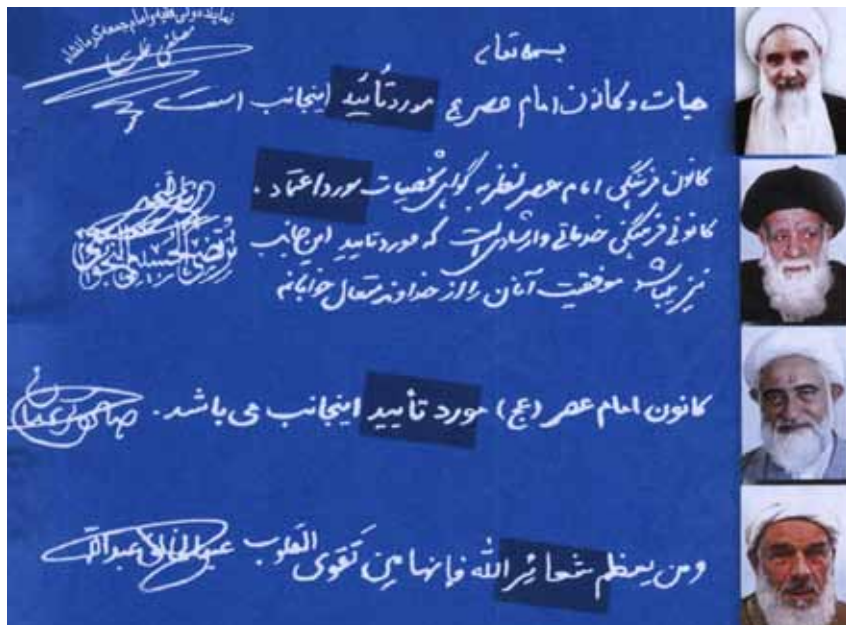 بسمه تعالی
هیات و کانون امام عصر عج مورد تأئید اینجانب است
نماینده ولی فقیه و امام جمعه کرمانشاه
کانون فرهنگی امام عصر نظر به گواهی شخصیات مورد اعتماد .
کانونی فرهنگی خدماتی و ارشادی است که مورد تایید این جانب
نیز میباشد موفقیت آنان را از خداوند متعال خواهانم
مرتضی الحسینی النجومی
کانون امام عصر (عج) مورد تأیید اینجانب می باشد .
ومن یعظم شعائر الله فإنها من تقوی القلوب